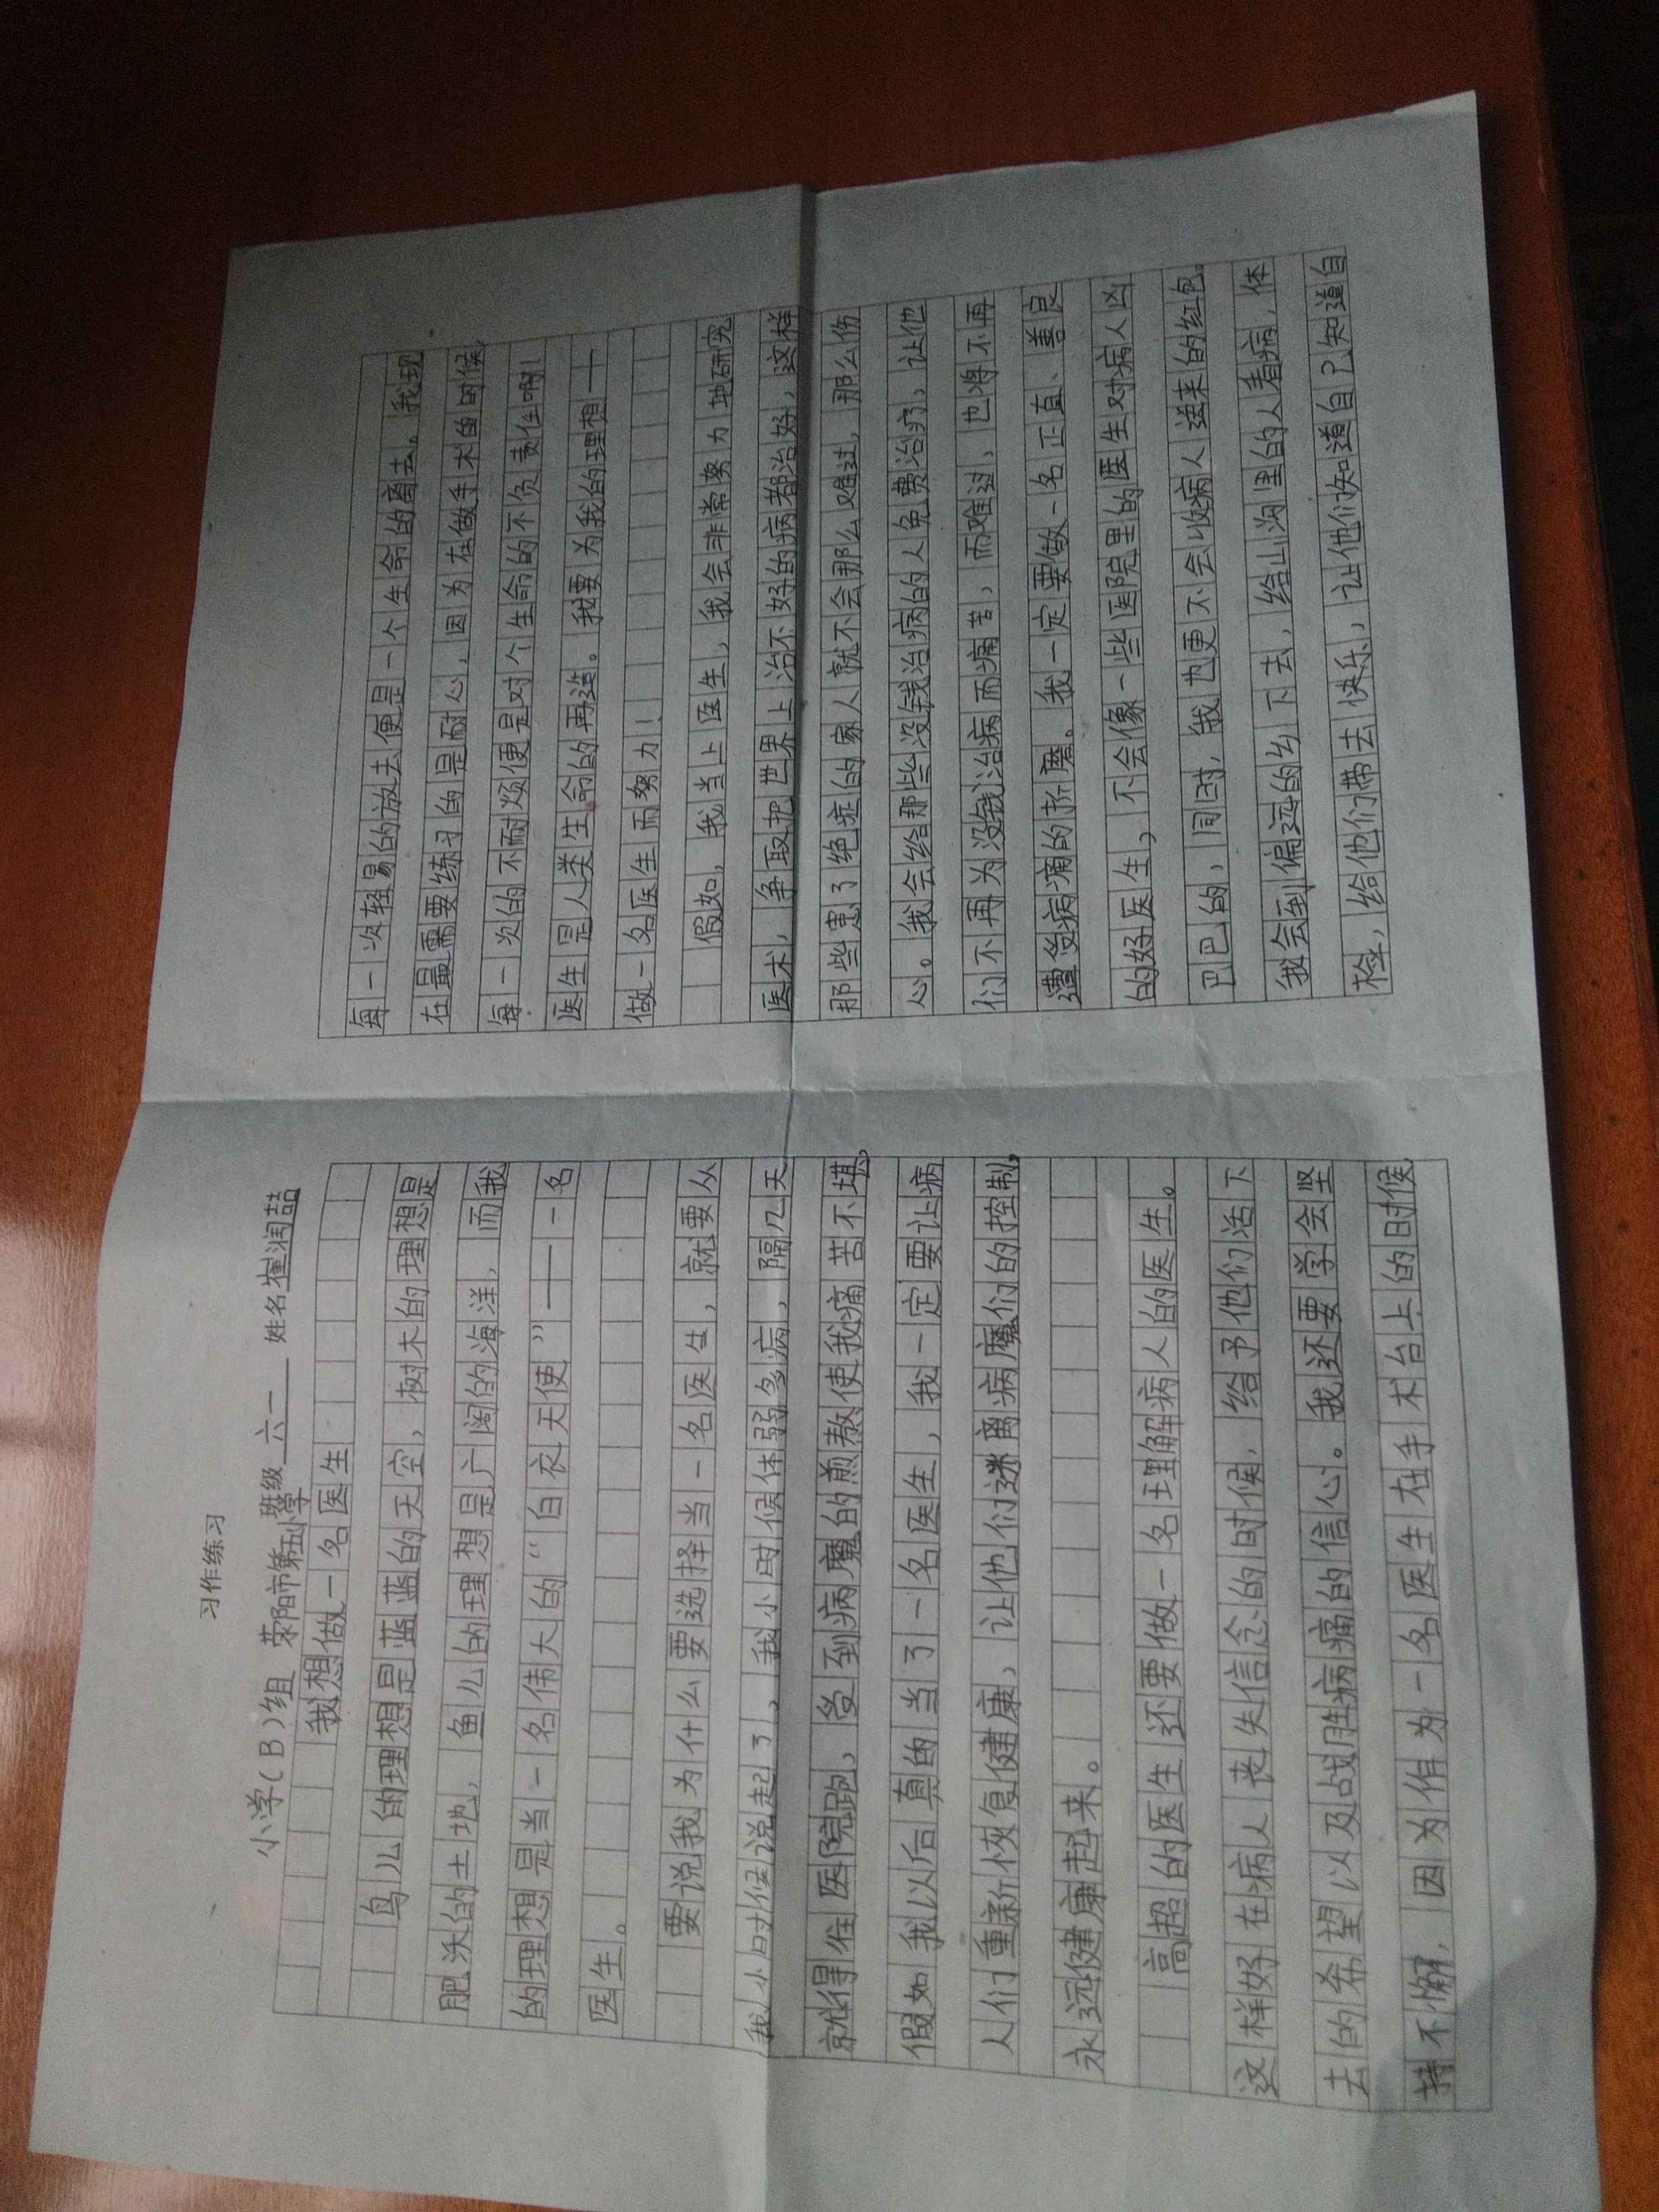 习作练习
小学(B)组 荥阳市第五小学 班级 六一 姓名 崔润喆
我想做一名医生
鸟儿的理想是蓝蓝的天空，树木的理想是
肥沃的土地，鱼儿的理想是广阔的海洋，而我
的理想是当一名伟大的“白衣天使”——一名
医生。
要说我为什么要选择当一名医生，就要从
我小时候说起了，我小时候体弱多病，隔几天
就得往医院跑，受到病魔的煎熬使我痛苦不堪。
假如我以后真的当了一名医生，我一定要让病
人们重新恢复健康，让他们逃离病魔们的控制，
永远健康起来。
高超的医生还要做一名理解病人的医生。
这样好在病人丧失信念的时候，给予他们活下
去的希望以及战胜病痛的信心。我还要学会坚
持不懈，因为作为一名医生在手术台上的时候
每一次轻易的放去便是一个生命的离去。我现
在最需要练习的是耐心，因为在做手术的时候，
每一次的不耐烦便是对个生命的不负责任啊！
医生是人类生命的再造。我要为我的理想——
做一名医生而努力！
假如，我当上医生，我会非常努力地研究
医术，争取把世界上治不好的病都治好，这样
那些患了绝症的家人就不会那么难过，那么伤
心。我会给那些没钱治病的人免费治疗，让他
们不再为没钱治病而痛苦，而难过，也将不再
遭受病痛的折磨。我一定要做一名正直、善良
的好医生，不会像一些医院里的医生对病人凶
巴巴的，同时，我也更不会收病人送来的红包。
我会到偏远的乡下去，给山沟里的人看病，体
检，给他们带去快乐，让他们知道自己知道自